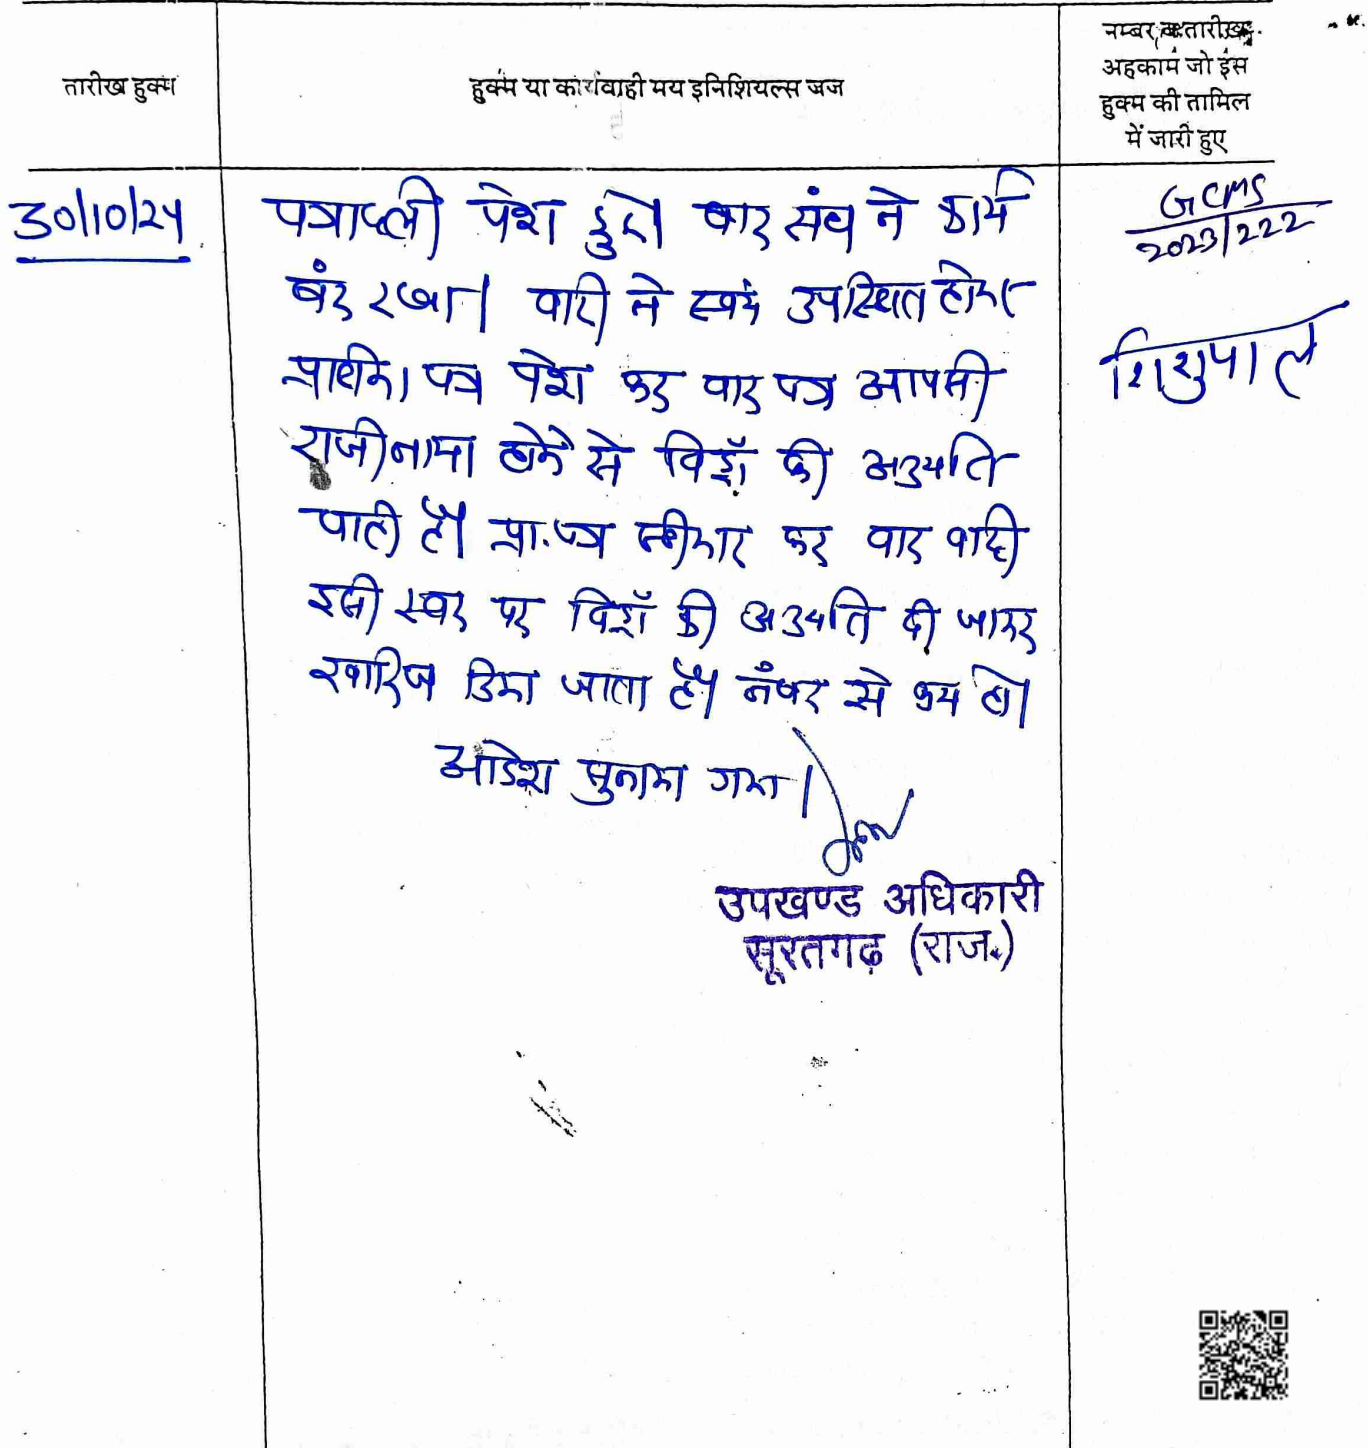 तारीख हुक्म
हुक्म या कार्यवाही मय इनिशियल्स जज
नम्बर व तारीख
अहकाम जो इस
हुक्म की तामिल
में जारी हुए
30/10/24
पत्रावली पेश हुई। बार संघ ने कार्य
बंद रखा। वादी ने स्वयं उपस्थित होकर
प्रार्थना पत्र पेश कर वाद पत्र आपसी
राजीनामा होने से विड्रॉ की अनुमति
चाही है। प्रा.पत्र स्वीकार कर वाद वादी
इसी स्तर पर विड्रॉ की अनुमति दी जाकर
खारिज किया जाता है। नंबर से कम हो।
आदेश सुनाया गया।
उपखण्ड अधिकारी
सूरतगढ़ (राज.)
GCMS
2023/222
शिशुपाल